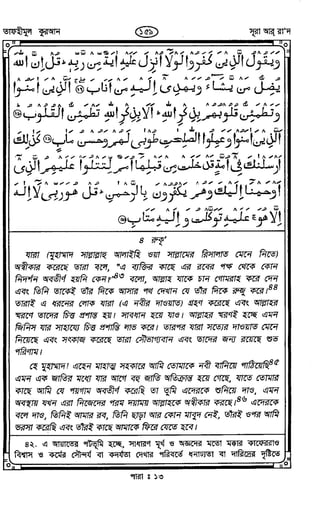 তাফহীমুল কুরআন
১৫৯
সূরা আর্ রা'দ
وَيَقُولُ الَّذِينَ كَفَرُوا لَوْلَا أُنْزِلَ عَلَيْهِ آيَةٌ مِنْ رَبِّهِ ۗ قُلْ إِنَّ اللَّهَ
يُضِلُّ مَنْ يَشَاءُ وَيَهْدِي إِلَيْهِ مَنْ أَنَابَ ۝ الَّذِينَ آمَنُوا
وَتَطْمَئِنُّ قُلُوبُهُمْ بِذِكْرِ اللَّهِ ۗ أَلَا بِذِكْرِ اللَّهِ تَطْمَئِنُّ الْقُلُوبُ ۝
الَّذِينَ آمَنُوا وَعَمِلُوا الصَّالِحَاتِ طُوبَىٰ لَهُمْ وَحُسْنُ مَآبٍ ۝ كَذَٰلِكَ
أَرْسَلْنَاكَ فِي أُمَّةٍ قَدْ خَلَتْ مِنْ قَبْلِهَا أُمَمٌ لِتَتْلُوَ عَلَيْهِمُ الَّذِي
أَوْحَيْنَا إِلَيْكَ وَهُمْ يَكْفُرُونَ بِالرَّحْمَٰنِ ۚ قُلْ هُوَ رَبِّي لَا إِلَٰهَ
إِلَّا هُوَ عَلَيْهِ تَوَكَّلْتُ وَإِلَيْهِ مَتَابِ ۝
৪ রুকূ'
যারা (মুহাম্মাদ সাল্লাল্লাহু আলাইহি ওয়া সাল্লামের রিসালাত মেনে নিতে)
অস্বীকার করেছে তারা বলে, "এ ব্যক্তির কাছে এর রবের পক্ষ থেকে কোন
নিদর্শন অবতীর্ণ হয়নি কেন?"৪৩ বলো, আল্লাহ যাকে চান গোমরাহ করে দেন
এবং তিনি তাকেই তাঁর দিকে আসার পথ দেখান যে তাঁর দিকে রুজু করে।৪৪
তারাই এ ধরনের লোক যারা (এ নবীর দাওয়াত) গ্রহণ করেছে এবং আল্লাহর
স্মরণে তাদের চিত্ত প্রশান্ত হয়। সাবধান হয়ে যাও। আল্লাহর স্মরণই হচ্ছে এমন
জিনিস যার সাহায্যে চিত্ত প্রশান্তি লাভ করে। তারপর যারা সত্যের দাওয়াত মেনে
নিয়েছে এবং সৎকাজ করেছে তারা সৌভাগ্যবান এবং তাদের জন্য রয়েছে শুভ
পরিণাম।
হে মুহাম্মাদ! এহেন মাহাত্ম সহকারে আমি তোমাকে নবী বানিয়ে পাঠিয়েছি৪৫
এমন এক জাতির মধ্যে যার আগে বহু জাতি অতিক্রান্ত হয়ে গেছে, যাতে তোমার
কাছে আমি যে পয়গাম অবতীর্ণ করেছি তা তুমি এদেরকে শুনিয়ে দাও, এমন
অবস্থায় যখন এরা নিজেদের পরম দয়াময় আল্লাহকে অস্বীকার করছে।৪৬ এদেরকে
বলে দাও, তিনিই আমার রব, তিনি ছাড়া আর কোন মাবুদ নেই, তাঁরই ওপর আমি
ভরসা করেছি এবং তাঁরই কাছে আমাকে ফিরে যেতে হবে।
৪২. এ আয়াতের পটভূমি হচ্ছে, সাধারণ মূর্খ ও অজ্ঞদের মতো মক্কার কাফেররাও
বিশ্বাস ও কর্মের সৌন্দর্য বা কদর্যতা দেখার পরিবর্তে ধনাঢ্যতা বা দারিদ্রের দৃষ্টিতে
পারা : ১৩